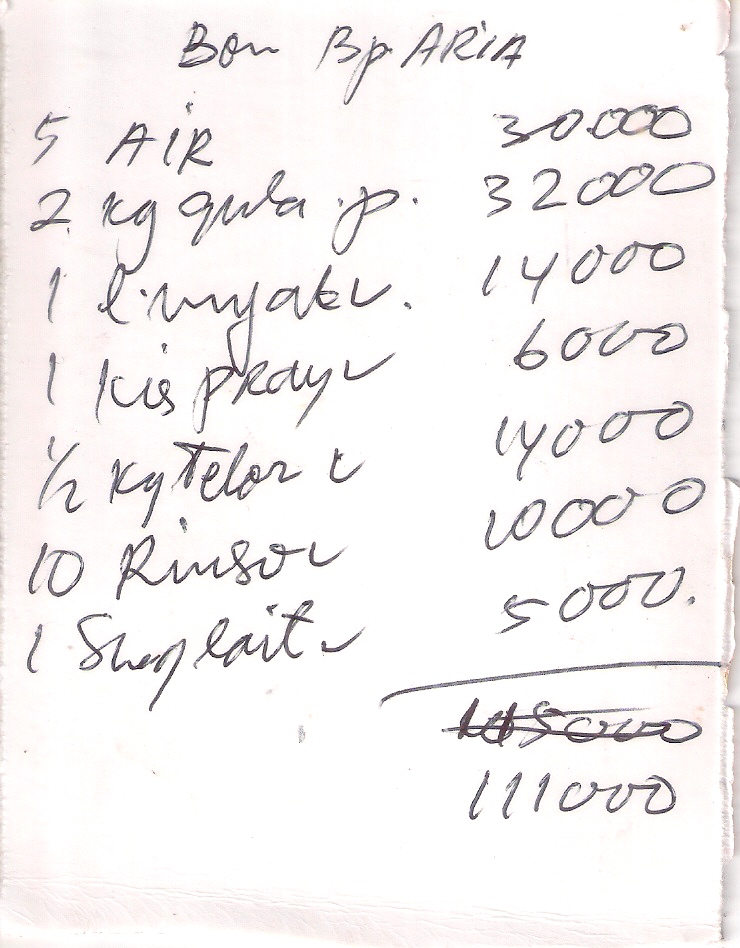 Bon Bp. ARIA
5 AIR 30.000
2 kg gula .p. 32000
1 l. mnyak 14000
1 kis 6000
1/2 kg Telor 14000
10 Rinso 10000
1 Sunlait 5000.
115000
111000